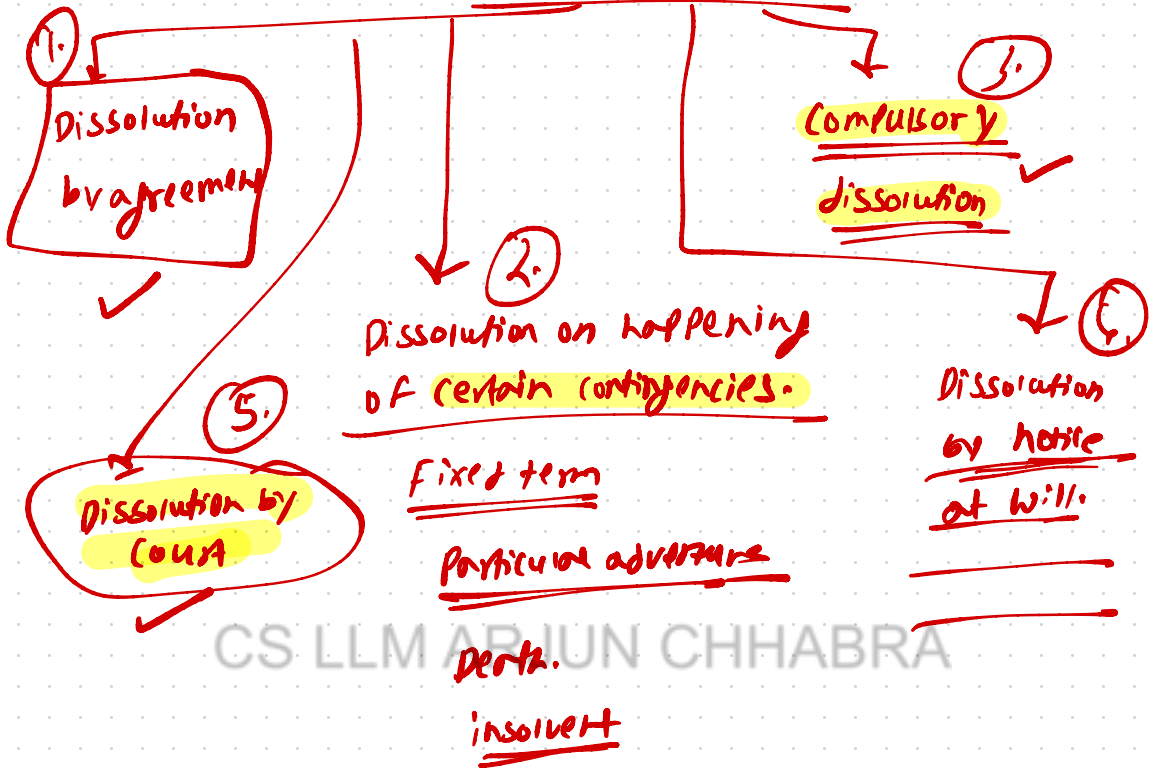 1.
Dissolution
by agreement
3.
Compulsory
dissolution
2.
Dissolution on happening
of certain contingencies.
Fixed term
Particular adventure
Death.
insolvent
Dissolution
by notice
at will.
5.
Dissolution by
Court
CS LLM ARJUN CHHABRA